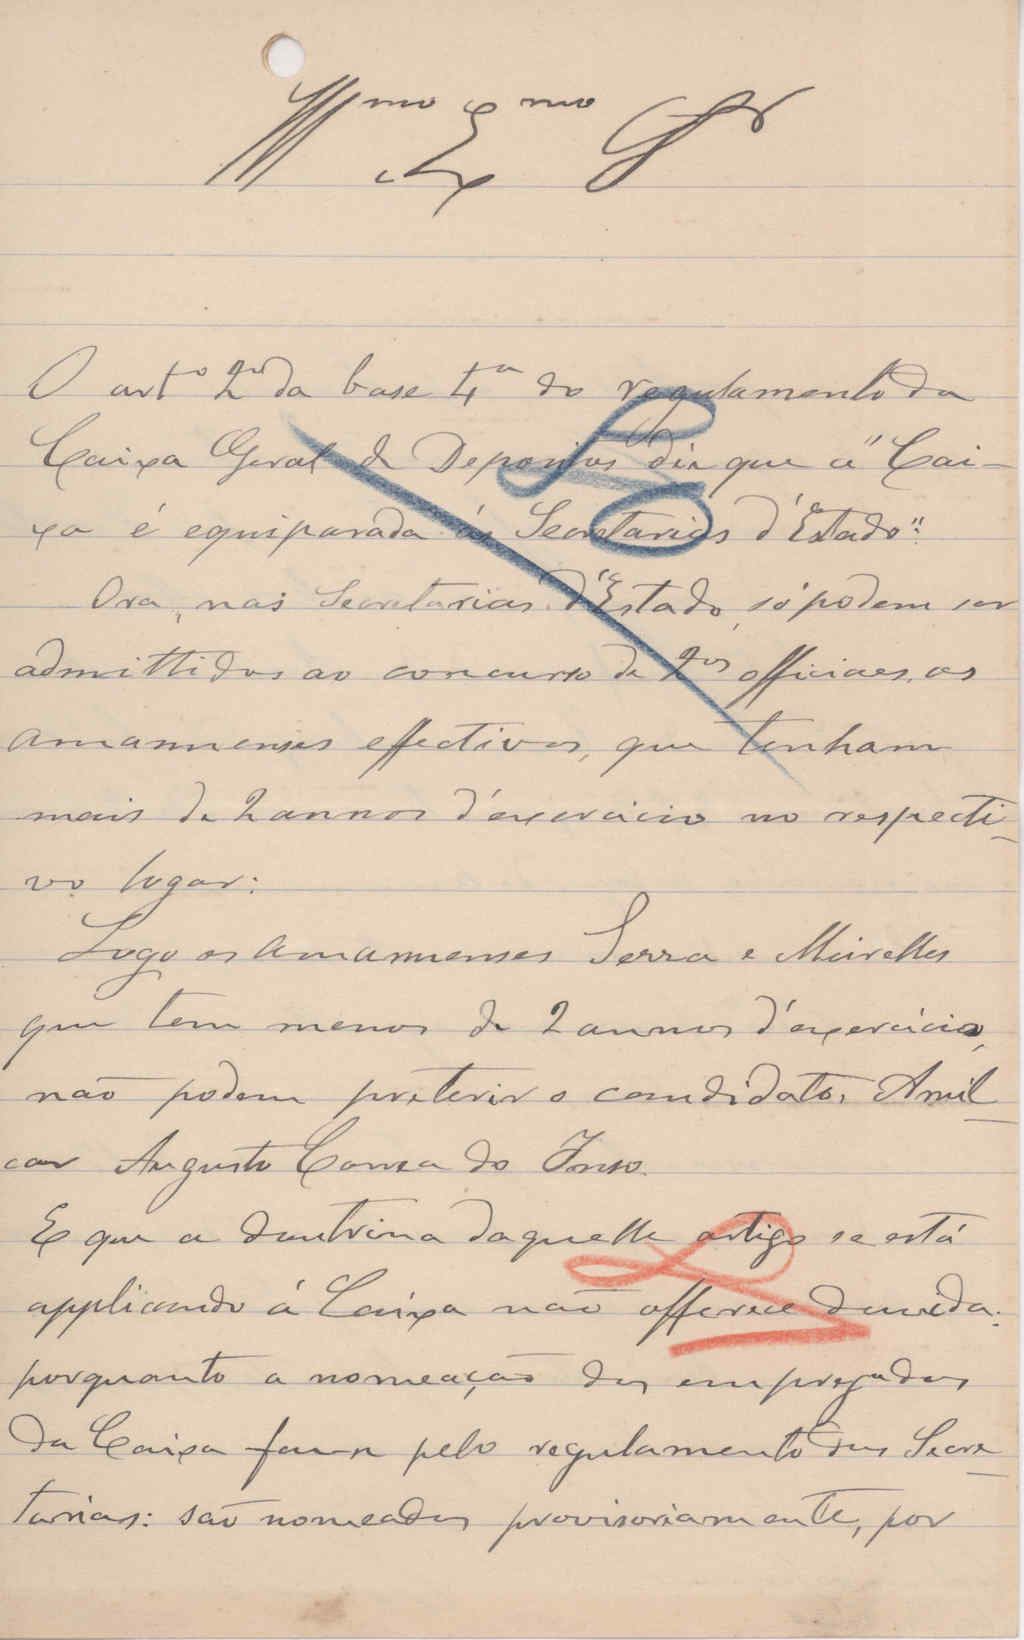 Illmo Exmo Sr
O arto 2o da base 4a do regulamento da
Caixa Geral de Depositos diz que a "Cai-
xa é equiparada ás Secretarias d'Estado":
Ora, nas Secretarias d'Estado, só podem ser
admittidos ao concurso de 2os officiaes, os
amanuenses effectivos, que tenham
mais de 2 annos d'exercicio no respecti-
vo logar:
Logo os amanuenses Serra e Meirelles
que tem menos de 2 annos d'exercicio,
não podem preterir o candidato, Amil-
car Augusto Correa do Inso.
E que a doutrina daquelle artigo se está
applicando á Caixa não offerece duvida:
porquanto a nomeação dos empregados
da Caixa faz-se pelo regulamento das Secre-
tarias: são nomeados provisoriamente, por